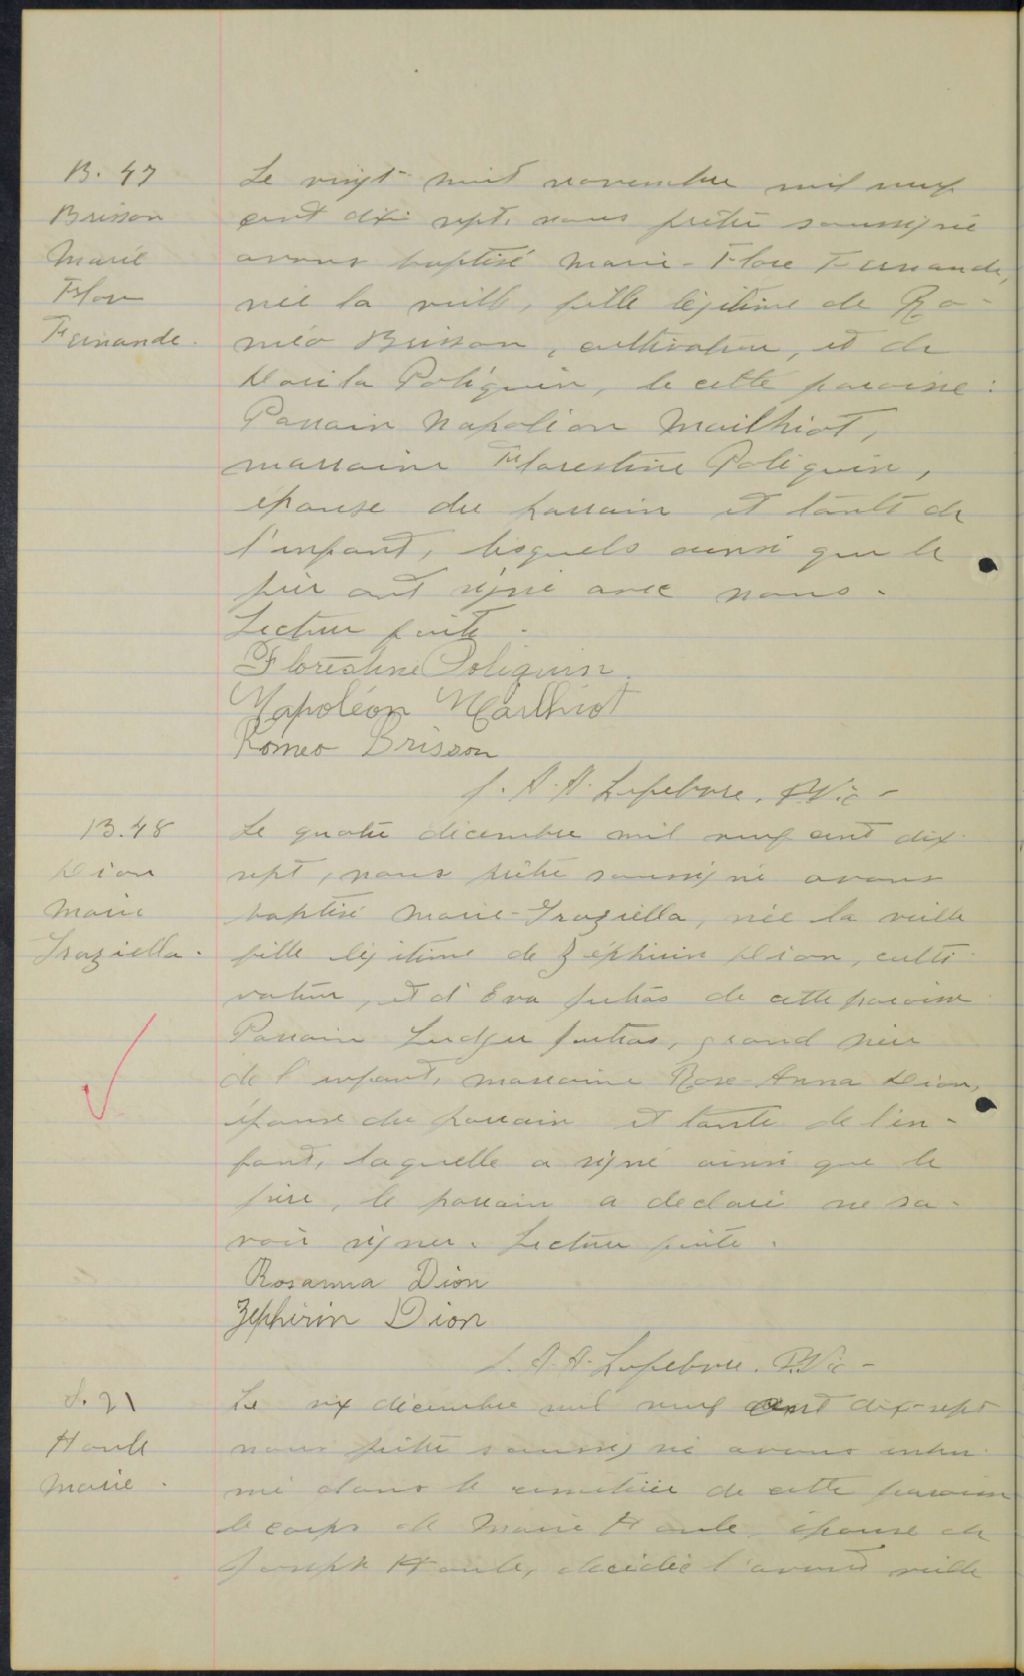 B. 47
Brisson
Marie
Flore
Fernande.
Le vingt-huit novembre mil neuf
cent dix-sept, nous prêtre soussigné
avons baptisé Marie-Flore Fernande,
née la veille, fille légitime de Ro-
méo Brisson, cultivateur, et de
Poliquin, de cette paroisse :
Parrain Napoléon Mailhiot,
marraine Florestine Poliquin,
épouse du parrain et tante de
l'enfant, lesquels ainsi que le
père ont signé avec nous.
Lecture faite.
Florestine Poliquin.
Napoléon Mailhiot
Roméo Brisson
J. A. A. Lefebvre, P. Vic-
B. 48
Dion
Marie
Graziella.
Le quatre décembre mil neuf cent dix-
sept, nous prêtre soussigné avons
baptisé Marie-Graziella, née la veille
fille légitime de Zéphirin Dion, culti-
vateur, et d'Eva Jutras de cette paroisse.
Parrain Ludger Jutras, grand père
de l'enfant, marraine Rose-Anna Dion,
épouse du parrain et tante de l'en-
fant, laquelle a signé ainsi que le
père, le parrain a déclaré ne sa-
voir signer. Lecture faite.
Rosanna Dion
Zéphirin Dion
J. A. A. Lefebvre. P. Vic-
S. 21
Houle
Marie.
Le six décembre mil neuf cent dix-sept
nous prêtre soussigné avons inhu-
mé dans le cimetière de cette paroisse
le corps de Marie Houle, épouse de
Joseph Houle, décédée l'avant veille